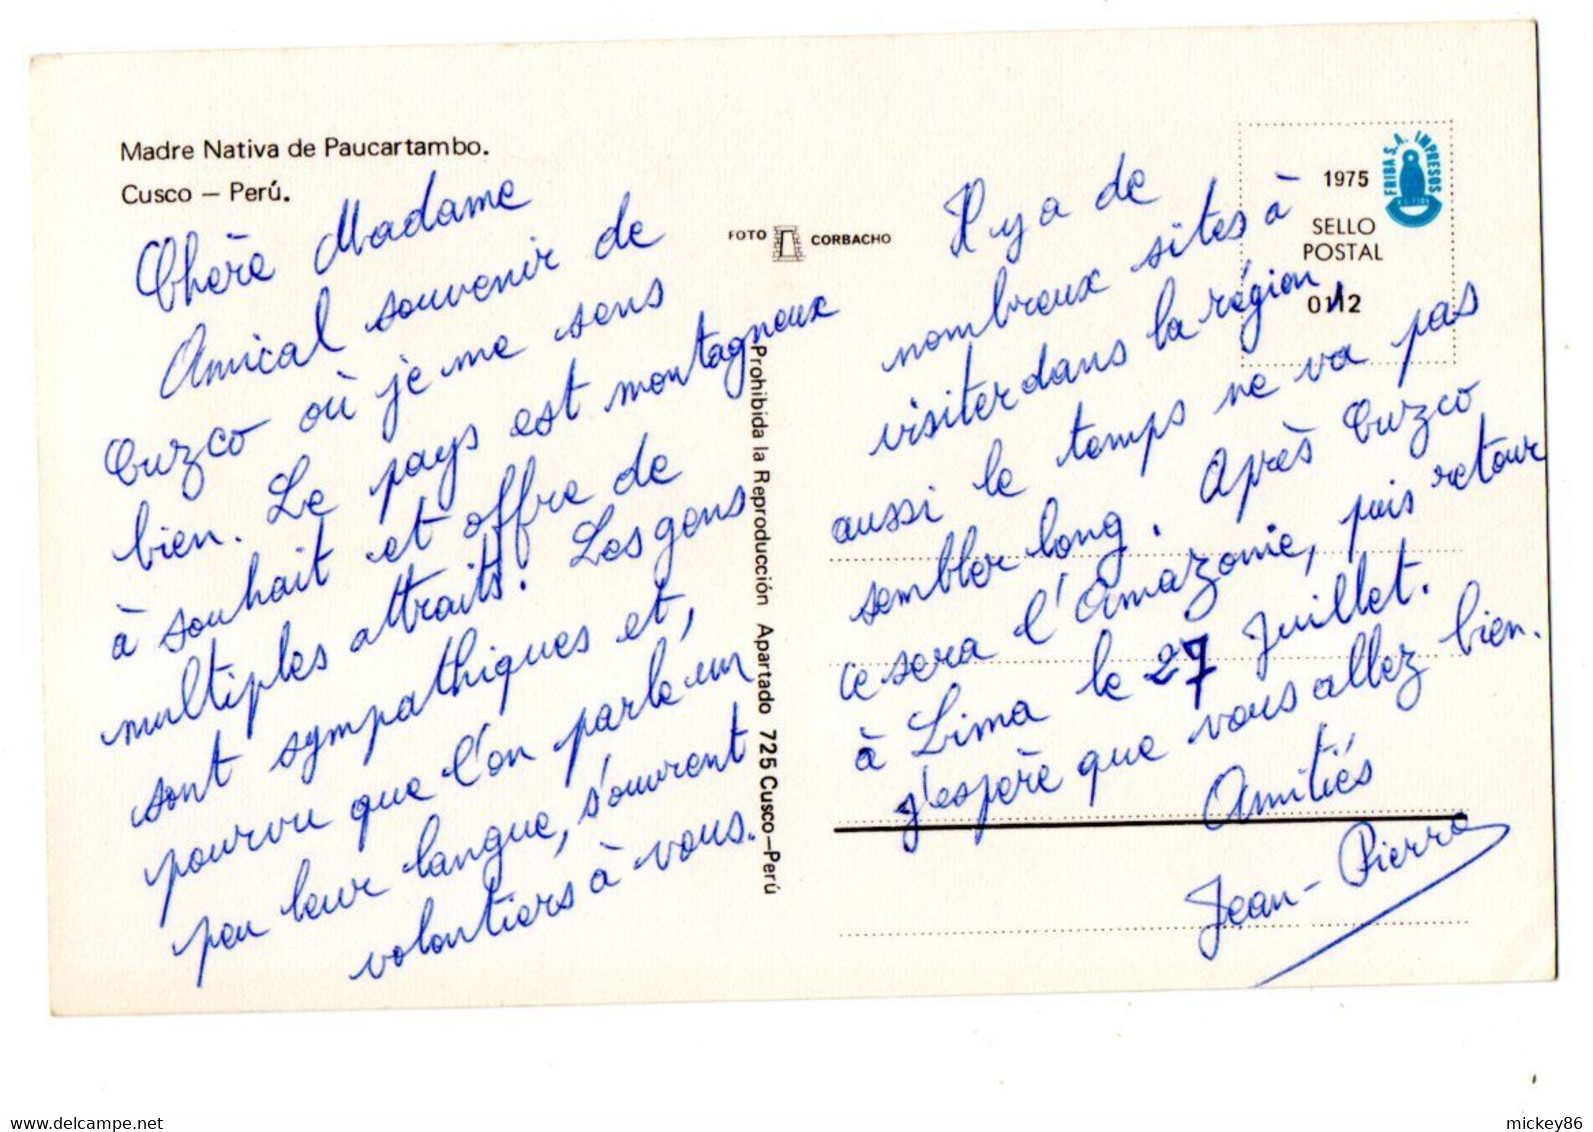 Madre Nativa de Paucartambo.
Cusco — Perú.
Chère Madame
Amical souvenir de
Cuzco où je me sens
bien. Le pays est montagneux
à souhait et offre de
multiples attraits. Les gens
sont sympathiques et,
pourvu que l'on parle un
peu leur langue, s'ouvrent
volontiers à vous.
FOTO CORBACHO
Prohibida la Reproducción Apartado 725 Cusco—Perú
FRIBA S.A. IMPRESOS
1975
SELLO
POSTAL
0112
Il y a de
nombreux sites à
visiter dans la région,
aussi le temps ne va pas
sembler long. Après Cuzco
ce sera l'Amazonie, puis retour
à Lima le 27 Juillet.
J'espère que vous allez bien.
Amitiés
Jean-Pierre
mickey86
delcampe.net